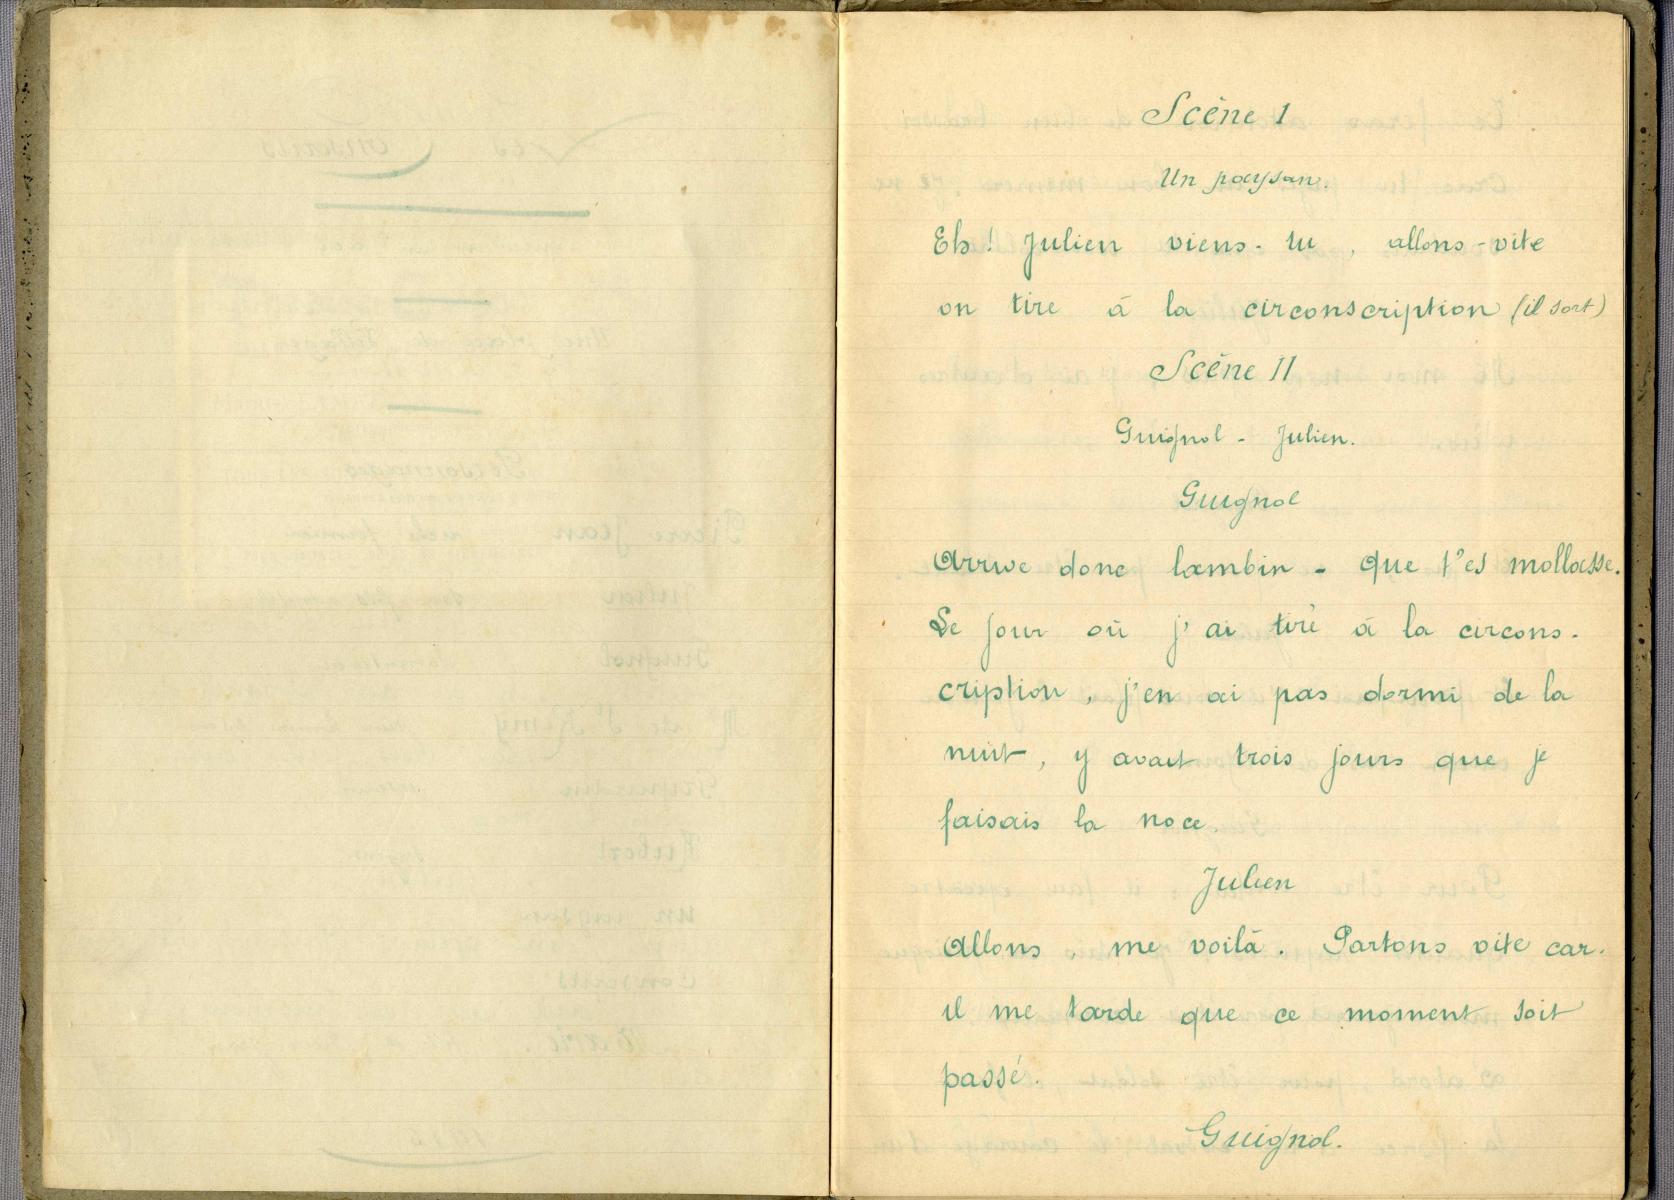 Scène 1
Un paysan.
Eh ! Julien viens-tu, allons-vite
on tire à la circonscription (il sort)
Scène II
Guignol - Julien.
Guignol
Arrive donc lambin - que t'es mollasse.
Le jour où j'ai tiré à la circons-
cription, j'en ai pas dormi de la
nuit, y avait trois jours que je
faisais la noce.
Julien
Allons, me voilà. Partons vite car.
il me tarde que ce moment soit
passé.
Guignol.